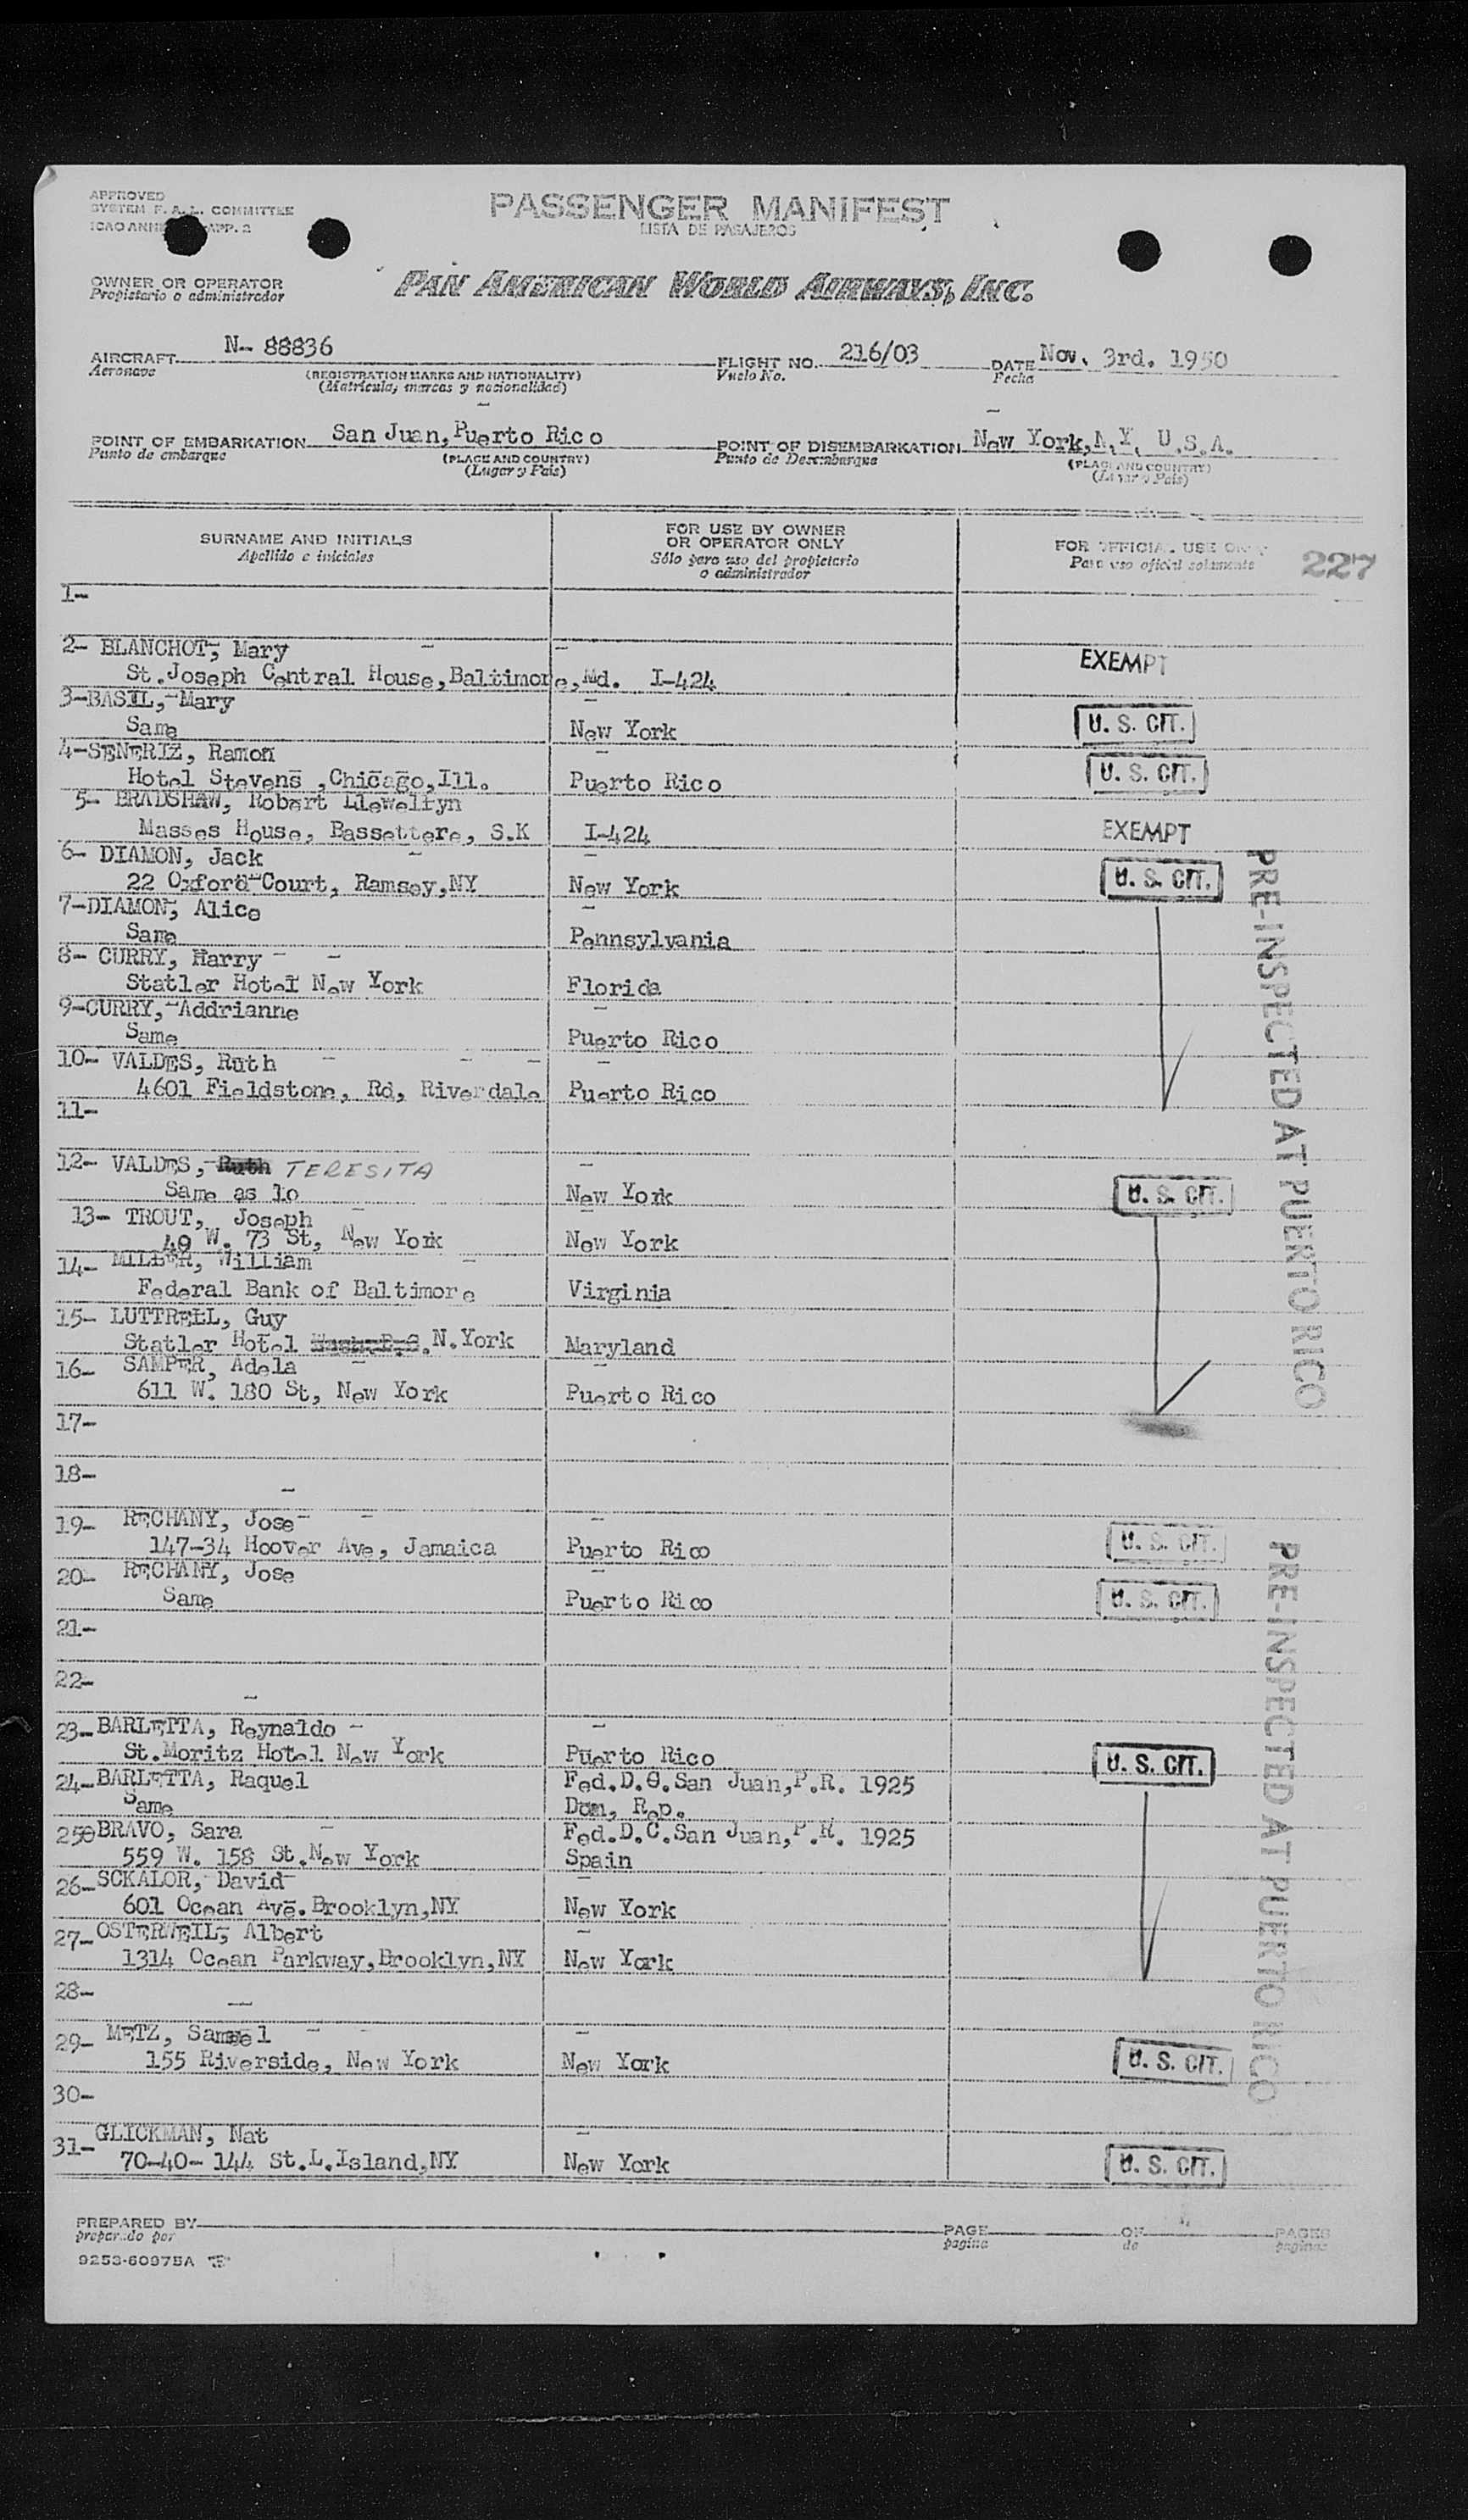 APPROVED
SYSTEM F. A. L. COMMITTEE
ICAO ANNE APP. 2
PASSENGER MANIFEST
LISTA DE PASAJEROS
OWNER OR OPERATOR
Propietario o administrador
PAN AMERICAN WORLD AIRWAYS, INC.
AIRCRAFT N- 88836 FLIGHT NO. 216/03 DATE Nov. 3rd. 1950
Aeronave (REGISTRATION MARKS AND NATIONALITY) Vuelo No. Fecha
(Matricula, marcas y nacionalidad)
POINT OF EMBARKATION San Juan, Puerto Rico POINT OF DISEMBARKATION New York, N.Y. U.S.A.
Punto de embarque (PLACE AND COUNTRY) Punto de Desembarque (PLACE AND COUNTRY)
(Lugar y Pais) (Lugar y Pais)
SURNAME AND INITIALS FOR USE BY OWNER OR OPERATOR ONLY FOR OFFICIAL USE ONLY 227
Apellido e iniciales Sólo para uso del propietario o administrador Para uso oficial solamente
1-
2- BLANCHOT, Mary EXEMPT
St. Joseph Central House, Baltimore, Md. I-424
3-BASIL, Mary
Same New York U. S. CIT.
4-SENERIZ, Ramon
Hotel Stevens, Chicago, Ill. Puerto Rico U. S. CIT.
5- BRADSHAW, Robert Llewellyn
Masses House, Bassettere, S.K I-424 EXEMPT
6- DIAMON, Jack
22 Oxford Court, Ramsey, NY New York U. S. CIT.
7-DIAMON, Alice
Same Pennsylvania
8- CURRY, Harry
Statler Hotel New York Florida
9-CURRY, Addrianne
Same Puerto Rico
10- VALDES, Ruth
4601 Fieldstone, Rd, Riverdale Puerto Rico
11-
PRE-INSPECTED AT PUERTO RICO
12- VALDES, Ruth TERESITA
Same as 10 New York U. S. CIT.
13- TROUT, Joseph
49 W. 73 St, New York New York
14- MILLER, William
Federal Bank of Baltimore Virginia
15- LUTTRELL, Guy
Statler Hotel N. York Maryland
16- SAMPER, Adela
611 W. 180 St, New York Puerto Rico
17-
18-
19- RECHANY, Jose
147-34 Hoover Ave, Jamaica Puerto Rico U. S. CIT.
20- RECHANY, Jose
Same Puerto Rico U. S. CIT.
21-
22-
PRE-INSPECTED AT PUERTO RICO
23- BARLETTA, Reynaldo
St. Moritz Hotel New York Puerto Rico U. S. CIT.
24- BARLETTA, Raquel Fed.D.C. San Juan, P.R. 1925
Same Dom, Rep.
25- BRAVO, Sara Fed.D.C. San Juan, P.R. 1925
559 W. 158 St. New York Spain
26- SCKALOR, David
601 Ocean Ave. Brooklyn, NY New York
27- OSTERWEIL, Albert
1314 Ocean Parkway, Brooklyn, NY New York
28-
29- METZ, Samuel
155 Riverside, New York New York U. S. CIT.
30-
31- GLICKMAN, Nat
70-40- 144 St. L. Island, NY New York U. S. CIT.
PREPARED BY PAGE OF PAGES
preparado por pagina de paginas
9253-60975A